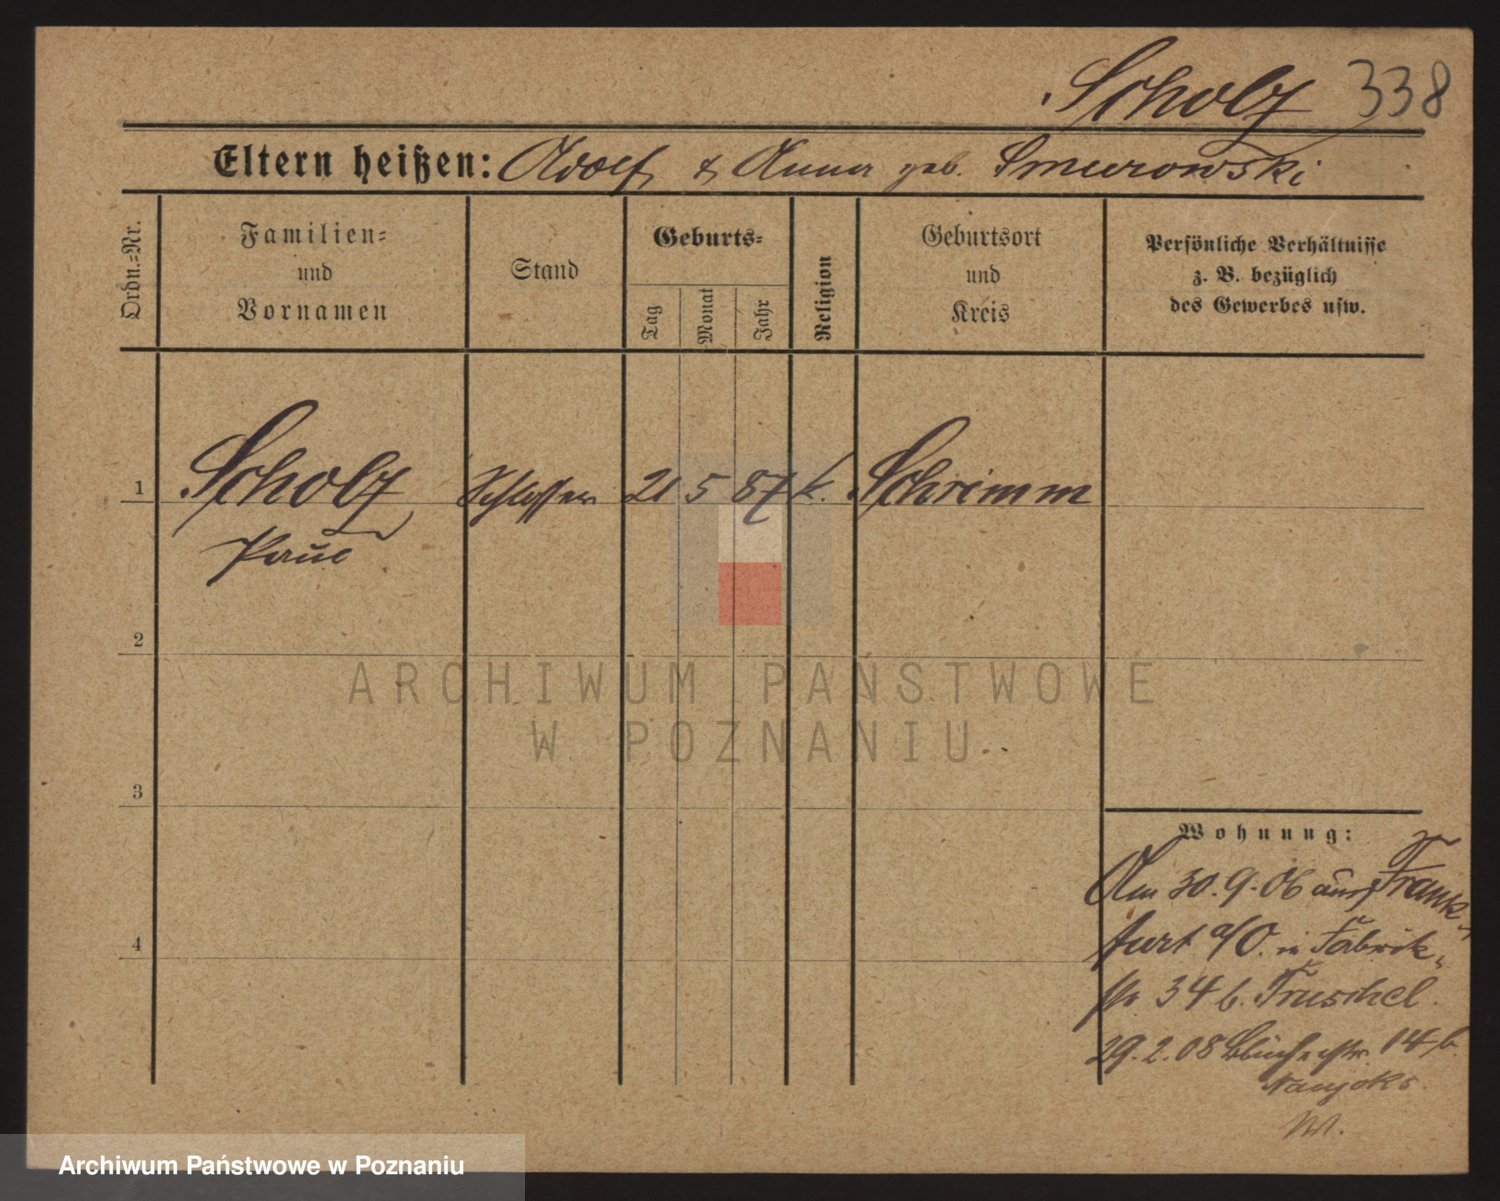 Scholz 338
Eltern heißen: Adolf & Anna geb. Smurowski
Ordn.-Nr.
Familien-
und
Vornamen
Stand
Geburts-
Tag
Monat
Jahr
Religion
Geburtsort
und
Kreis
Persönliche Verhältnisse
z. B. bezüglich
des Gewerbes usw.
1 Scholz Schlosser 21 5 87 k. Schrimm
Paul
2
ARCHIWUM PAŃSTWOWE
W POZNANIU
3
Wohnung:
Am 30.9.06 aus Frank-
4
furt a/O. in Fabrik-
str 34 b. Truschel.
29.2.08 Blücherstr. 14 b.
W.
Archiwum Państwowe w Poznaniu